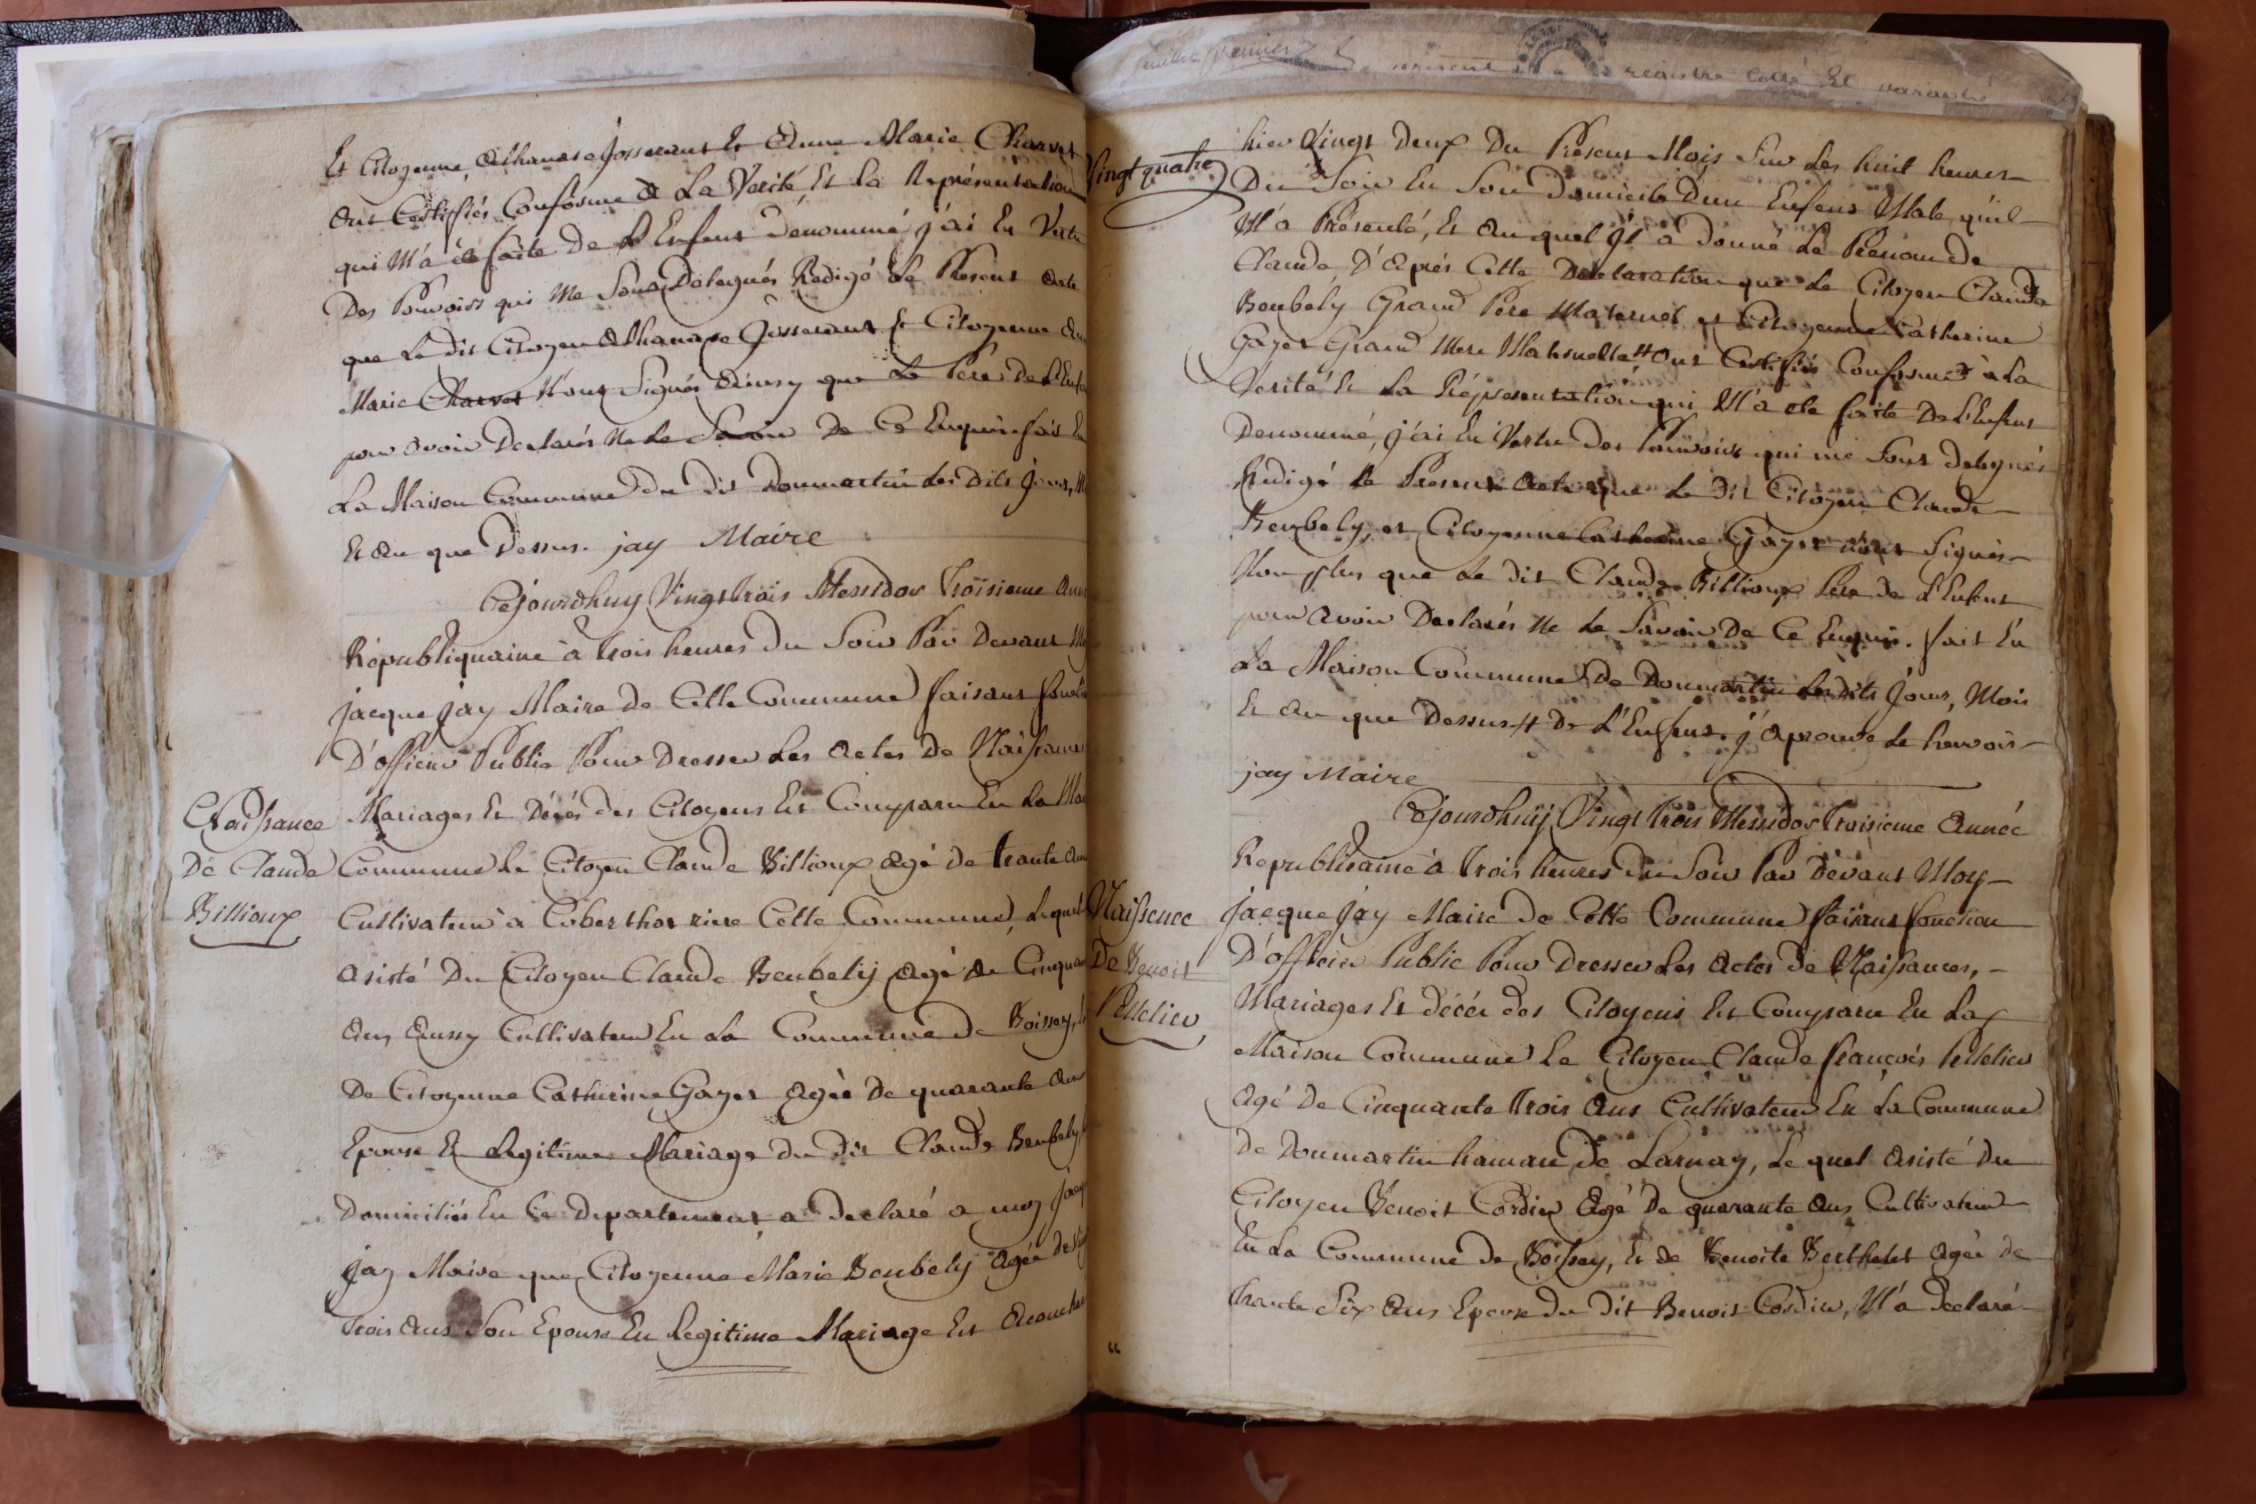 Et Citoyenne, Athanase Josserant Et Anne Marie Charvet
Ont Certifiés Conforme a La Verité Et la Représentation
qui M'a été faite De L'Enfent Dénommé, j'ai En Vertu
Des Pouvoirs qui Me Sons Delegués Redigé Le Present Acte
que Le dit Citoyen Athanase Josserant Et Citoyenne Anne
Marie Charvet N'ont Signés Ainsy que Le Pere De L'Enfent
pour avoir Declarés Ne Le Savoir De Ce Enquis fait En
La Maison Commune du dit Dommartin Les Dits Jours, M
Et An que Dessus. jay Maire
Cejourdhuy Vingt trois Messidor troisieme Anné
Républiquaine à trois heures Du Soir Par Devant Moy
jacque jay Maire de Cette Commune faisant fonction
D'officier Public Pour Dresser Les Actes De Naissances
Naissance
De Claude
Billioux
Mariages Et Décés des Citoyens Est Comparu En La Mai
Commune Le Citoyen Claude Billioux agé de trante Ans
Cultivateur à Coberthoz riere Cette Commune, Lequel
Asisté Du Citoyen Claude Beubely Agé de Cinquante
Ans Aussy Cultivateur En La Commune de Boissey, Et
De Citoyenne Catherine Gayet Agée De quarante Ans
Epouse En Legitime Mariage du dit Claude Beubely,
Domiciliés En Ce Departement a Declaré a moy jacque
jay Maire que Citoyenne Marie Beubely Agée de
trois Ans Son Epouse En Legitime Mariage Est Acouchée
Feuillet Premier
registre Cotté Et
Vingt quatre
hier Vingt Deux Du Présent Mois Sur Les huit heures
Du Soir En Son Domicile D'un Enfent Mâle qu'il
M'a Présenté, Et Au quel Il a donné Le Prénom de
Claude, D'Aprés Cette Declaration que Le Citoyen Claude
Beubely Grand Pere Maternel et Citoyenne Catherine
Gayet Grand Mere Maternelle # Ont Certifiés Conforme à La
Verité Et La Réprésentation qui M'a été faite De L'Enfent
Denommé, j'ai En Vertu Des Pouvoirs qui me Sont Delegués
Redigé le Present Acte que Le dit Citoyen Claude
Beubely, et Citoyenne Catherine Gayet N'ont Signés
Non plus que Le dit Claude Billioux Pere De L'Enfent
pour avoir Declarés Ne Le Savoir De Ce Enquis. fait En
La Maison Commune De Dommartin Lesdits Jours, Mois
Et An que Dessus # De L'Enfent. j'aprouve Le Renvois
jay Maire
Cejourdhuy Vingt trois Messidor troisieme Année
Républicaine à trois heures du Soir Par Dévant Moy
Naissence
De Benoit
Pelletier
jacque jay Maire de Cette Commune faisant fonction
D'officier Public Pour Dresser Les Actes de Naissances,
Mariages Et décés des Citoyens Est Comparu En La
Maison Commune Le Citoyen Claude françois Pelletier
Agé De Cinquante trois Ans Cultivateur En La Commune
De Dommartin hameau De Larnay, Le quel Asisté Du
Citoyen Benoit Cordier Agé De quarante Ans Cultivateur
En La Commune De Boissey, Et De Benoite Berthelet Agée de
trante Six Ans Epouse du Dit Benoit Cordier, M'a declaré